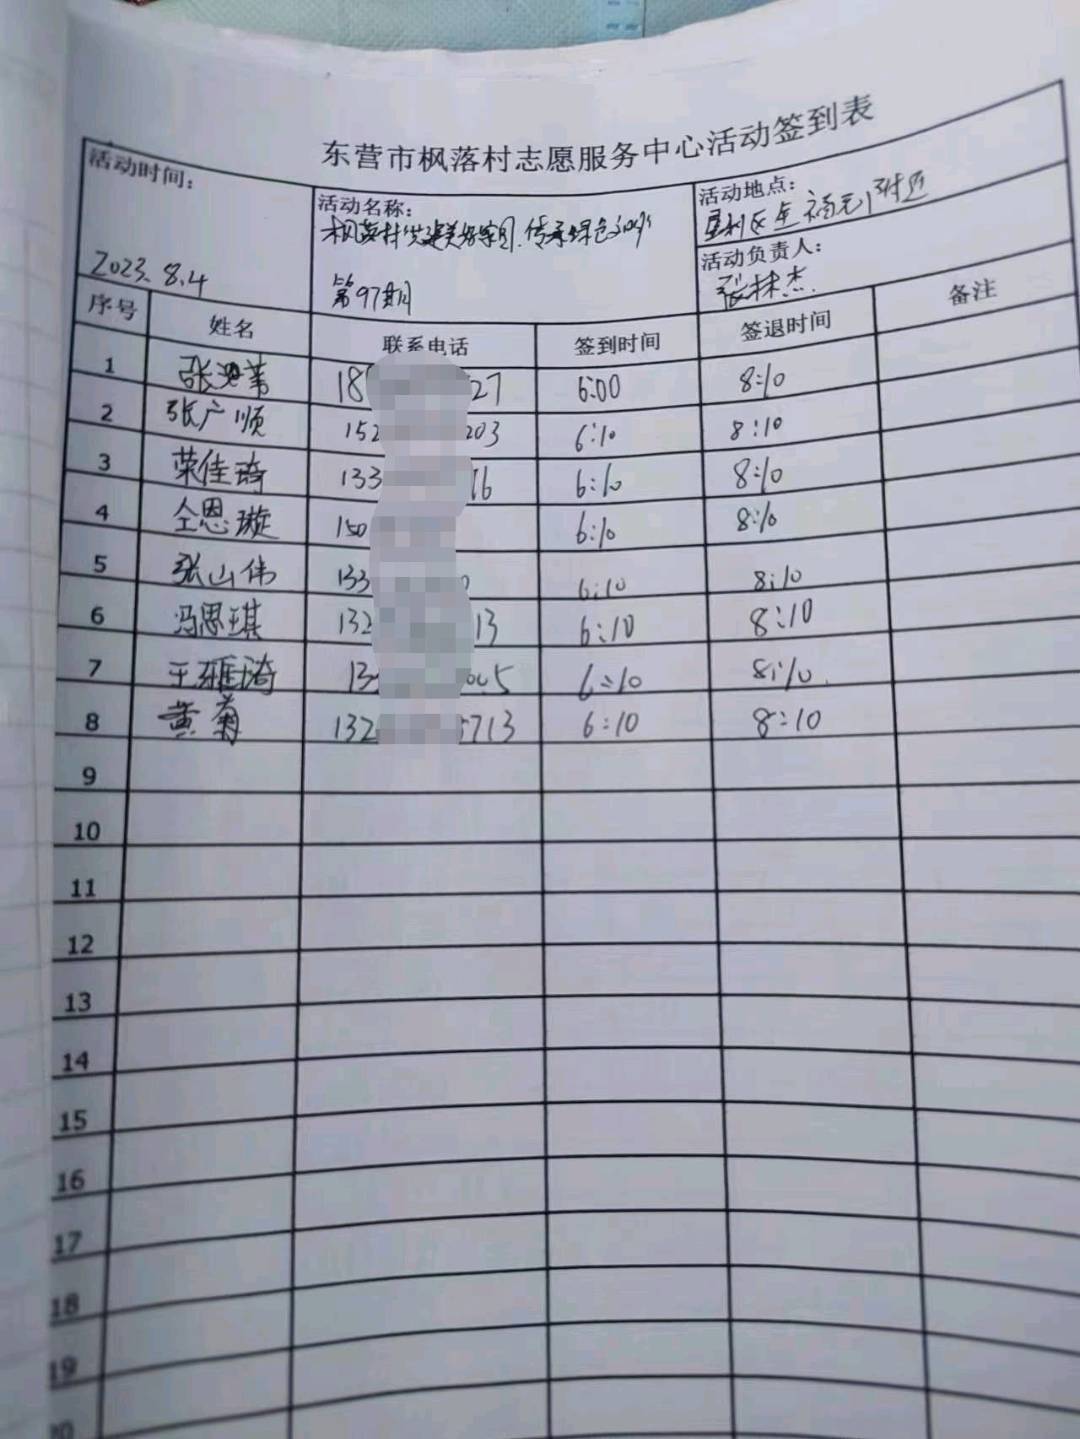 东营市枫落村志愿服务中心活动签到表
活动时间：
2023.8.4
活动名称：
枫落村"共建美好家园.传承绿色
第97期
活动地点：
垦利区
活动负责人：
张林杰
序号 姓名 联系电话 签到时间 签退时间 备注
1 张 18 27 6:00 8:10
2 张广顺 152 203 6:10 8:10
3 荣佳琦 133 16 6:10 8:10
4 仝恩璇 150 6:10 8:10
5 张山伟 133 6:10 8:10
6 冯思琪 132 13 6:10 8:10
7 王雁琦 13 5 6:10 8:10
8 黄菊 132 5713 6:10 8:10
9
10
11
12
13
14
15
16
17
18
19
20